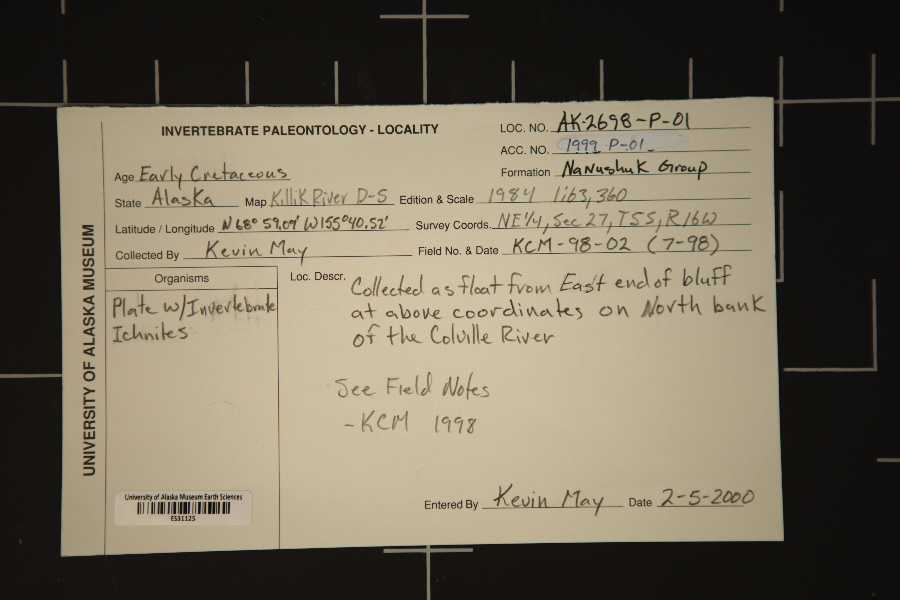 INVERTEBRATE PALEONTOLOGY - LOCALITY
LOC. NO. AK-2698-P-01
ACC. NO. 1999 P-01
Formation Nanushuk Group
Age Early Cretaceous
State Alaska Map Killik River D-5 Edition & Scale 1984 1:63,360
Latitude / Longitude N 68° 59.09' W 155° 40.52' Survey Coords. NE 1/4, Sec 27, T5S, R16W
Collected By Kevin May Field No. & Date KCM-98-02 (7-98)
Organisms
Plate w/Invertebrate
Ichnites
Loc. Descr. Collected as float from East end of bluff
at above coordinates on North bank
of the Colville River
See Field Notes
- KCM 1998
Entered By Kevin May Date 2-5-2000
UNIVERSITY OF ALASKA MUSEUM
University of Alaska Museum Earth Sciences
ES31125